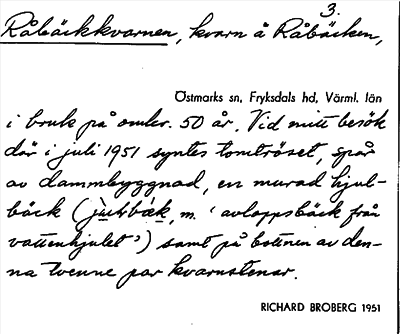 3.
Råbäckkvarnen, kvarn å Råbäcken,
Östmarks sn, Fryksdals hd, Värml. län
i bruk på omkr. 50 år. Vid mitt besök
där i juli 1951 syntes tomtröset, spår
av dammbyggnad, en murad hjul-
bäck (jùᶅbæ̀k, m. 'avloppsbäck från
vattenhjulet') samt på bottnen av den-
na tvenne par kvarnstenar.
RICHARD BROBERG 1951